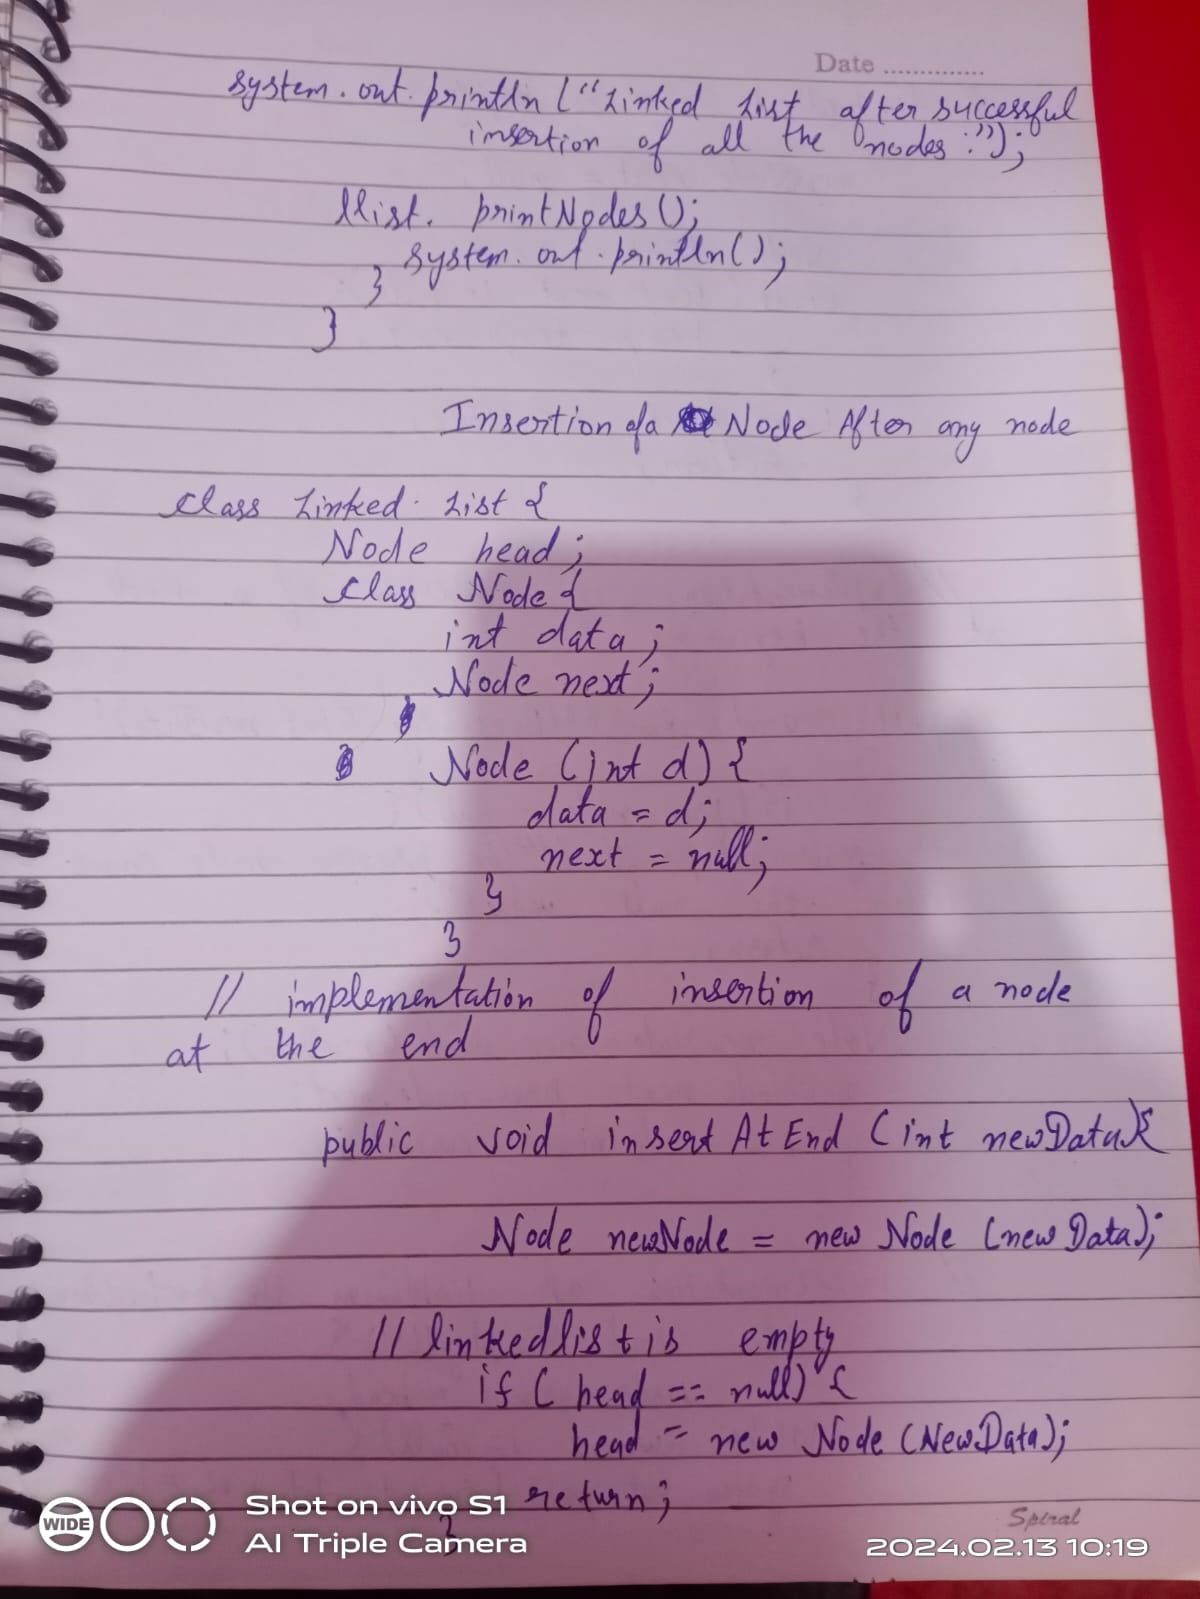 Date ..............
system.out.println("Linked List after successful
insertion of all the nodes:");
llist. printNodes();
system.out.println();
}
}
Insertion of a Node After any node
class Linked List {
Node head;
class Node {
int data;
Node next;
Node (int d) {
data = d;
next = null;
}
}
// implementation of insertion of a node
at the end
public void insertAtEnd (int newData){
Node newNode = new Node (newData);
// linkedlist is empty
if ( head == null) {
head = new Node (NewData);
return;
}
Spiral
WIDE
Shot on vivo S1
AI Triple Camera
2024.02.13 10:19